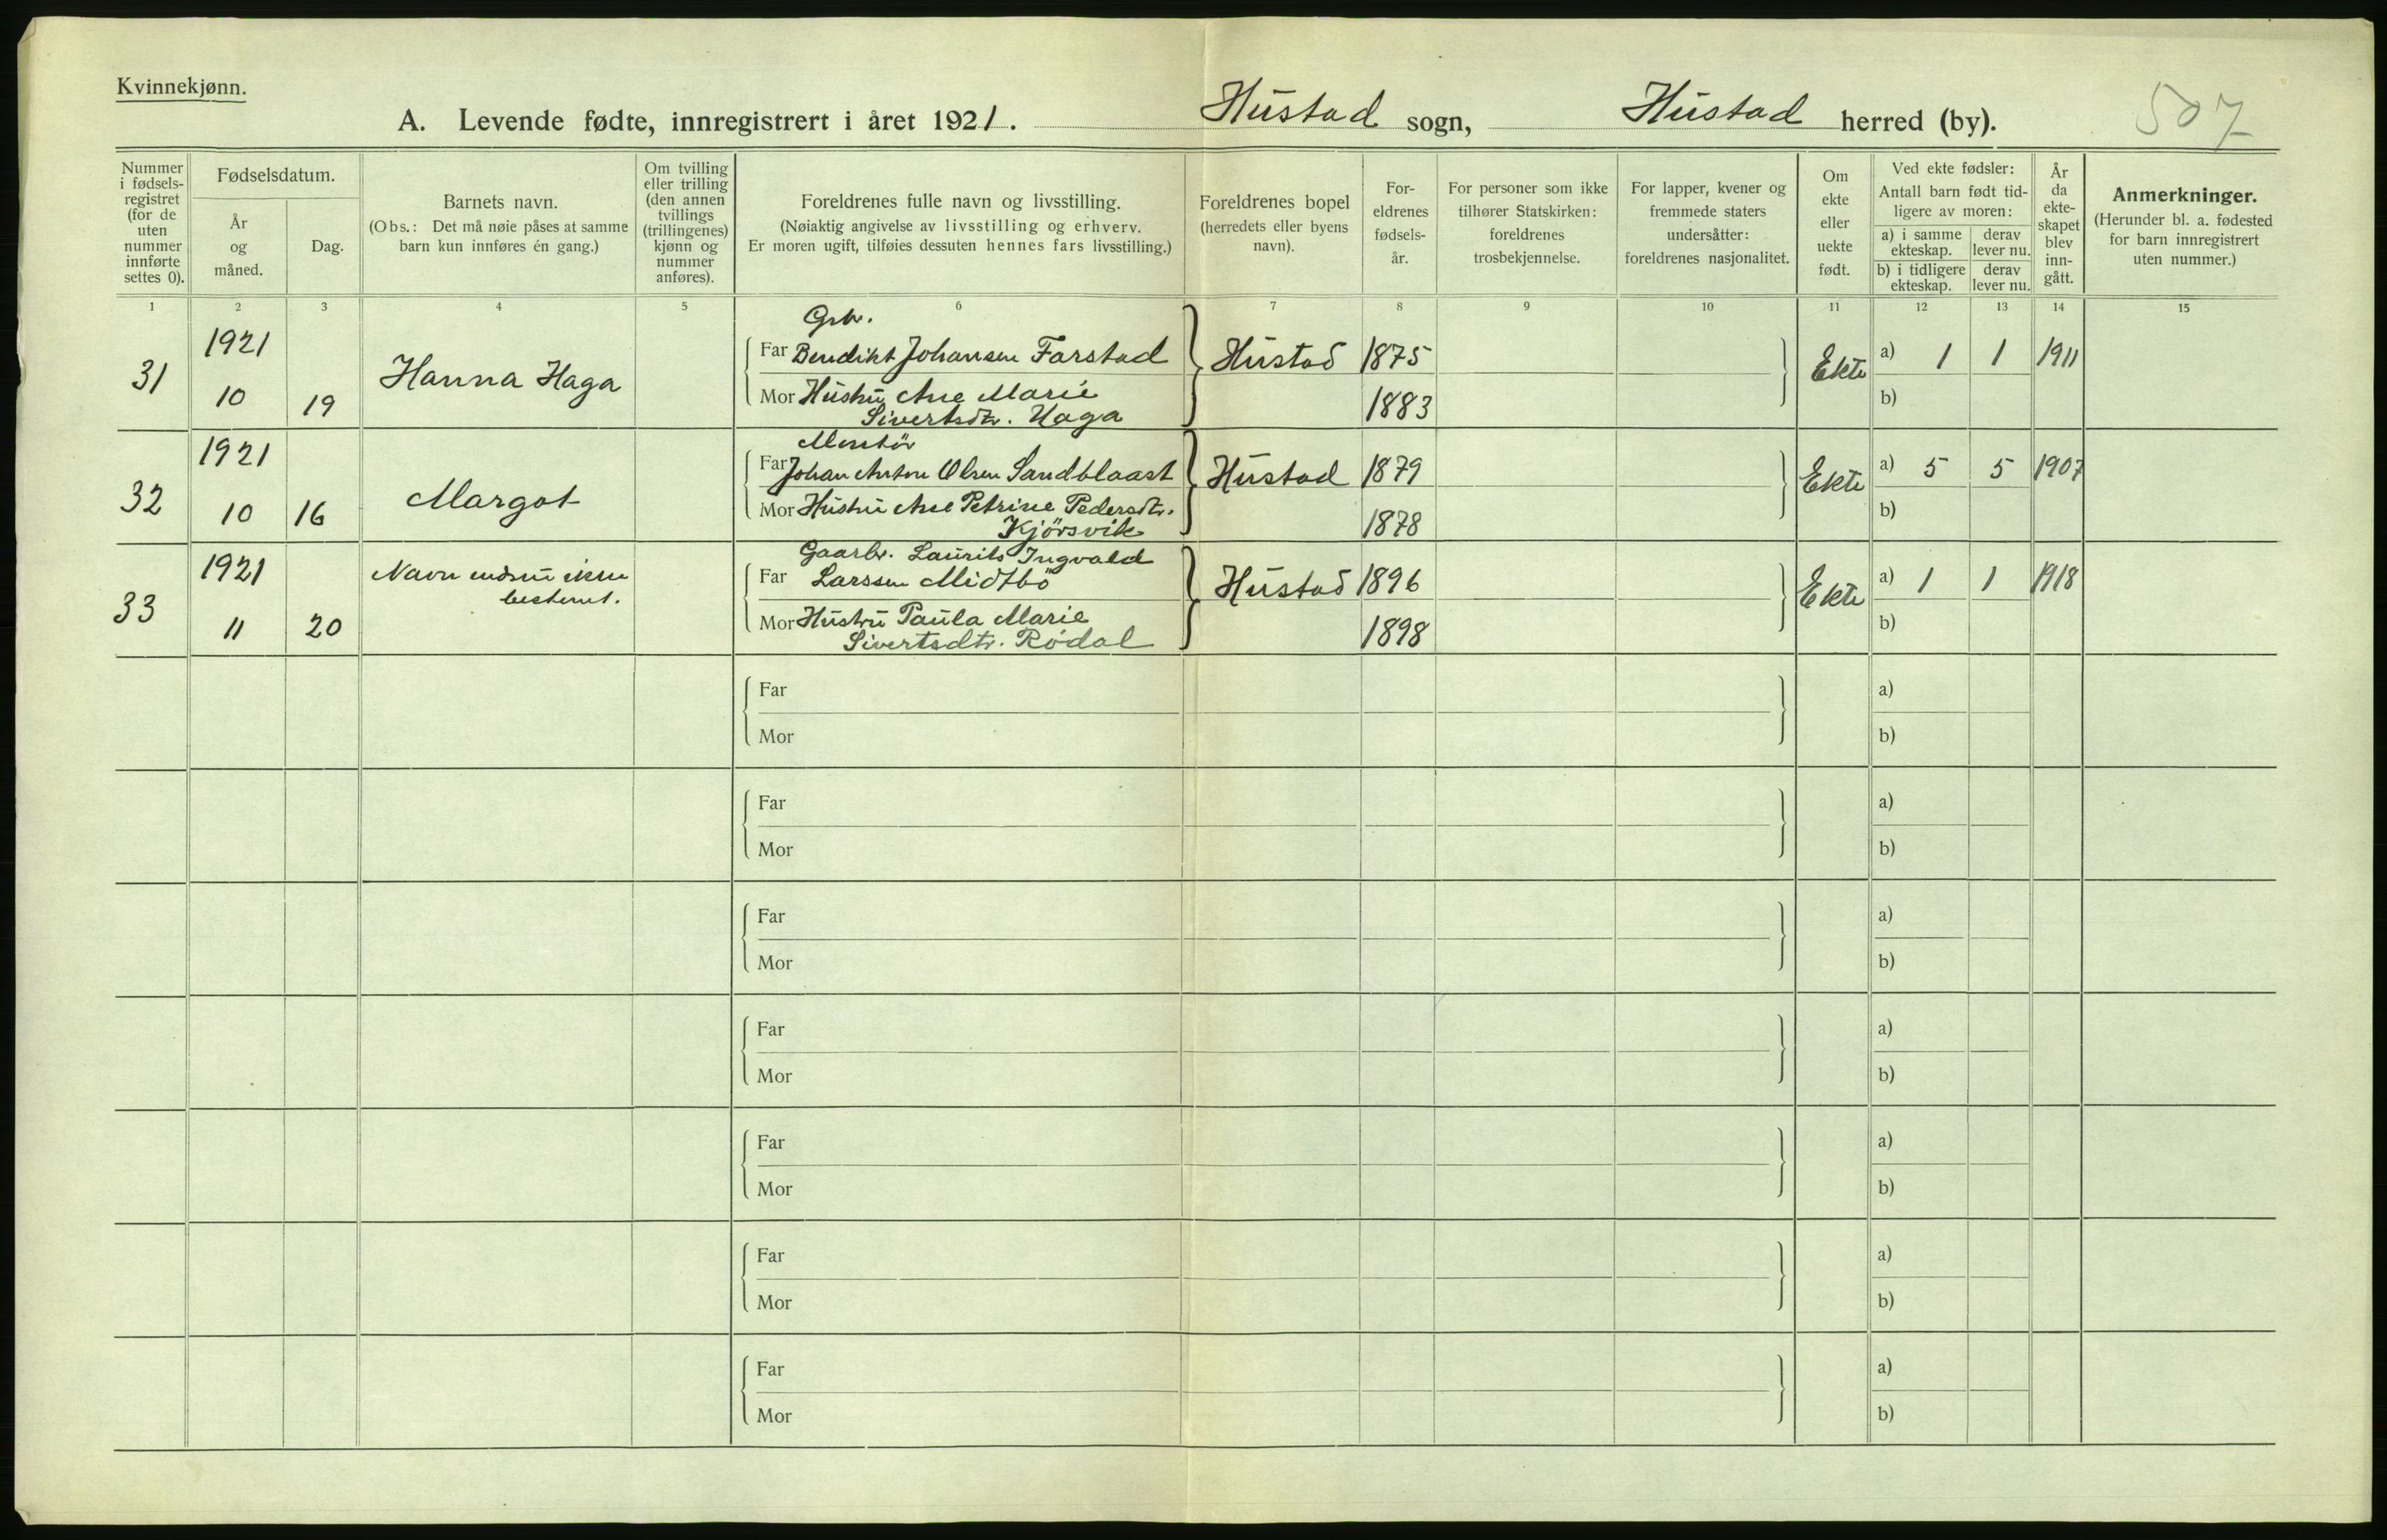 Kvinnekjønn.
A. Levende fødte, innregistrert i året 1921. Hustad sogn, Hustad herred (by). 507
Nummer i fødsels-registret (for de uten nummer innførte settes 0).
Fødselsdatum.
År og måned.
Dag.
Barnets navn.
(Obs.: Det må nøie påses at samme barn kun innføres én gang.)
Om tvilling eller trilling (den annen tvillings (trillingenes) kjønn og nummer anføres).
Foreldrenes fulle navn og livsstilling.
(Nøiaktig angivelse av livsstilling og erhverv.
Er moren ugift, tilføies dessuten hennes fars livsstilling.)
Foreldrenes bopel
(herredets eller byens navn).
For-eldrenes fødsels-år.
For personer som ikke tilhører Statskirken: foreldrenes trosbekjennelse.
For lapper, kvener og fremmede staters undersåtter: foreldrenes nasjonalitet.
Om ekte eller uekte født.
Ved ekte fødsler:
Antall barn født tid-ligere av moren:
a) i samme ekteskap.
derav lever nu.
b) i tidligere ekteskap.
derav lever nu.
År da ekte-skapet blev inn-gått.
Anmerkninger.
(Herunder bl. a. fødested for barn innregistrert uten nummer.)
1 2 3 4 5 6 7 8 9 10 11 12 13 14 15
Grbr.
31 1921 10 19 Hanna Haga Far Bendikt Johansen Farstad Hustad 1875 Ekte a) 1 1 1911
Mor Hustru Ane Marie 1883 b)
Sivertsdtr. Haga
32 1921 10 16 Margot Far Johan Anton Olsen Sandblaast Hustad 1879 Ekte a) 5 5 1907
Mor Hustru Ane Petrine Pedersdtr. 1878 b)
Kjörsvik
Gaarbr. Laurits Ingvald
33 1921 11 20 Navn endnu ikke Far Larssen Midtbö Hustad 1896 Ekte a) 1 1 1918
bestemt.
Mor Hustru Paula Marie 1898 b)
Sivertsdtr. Rödal
Far a)
Mor b)
Far a)
Mor b)
Far a)
Mor b)
Far a)
Mor b)
Far a)
Mor b)
Far a)
Mor b)
Far a)
Mor b)